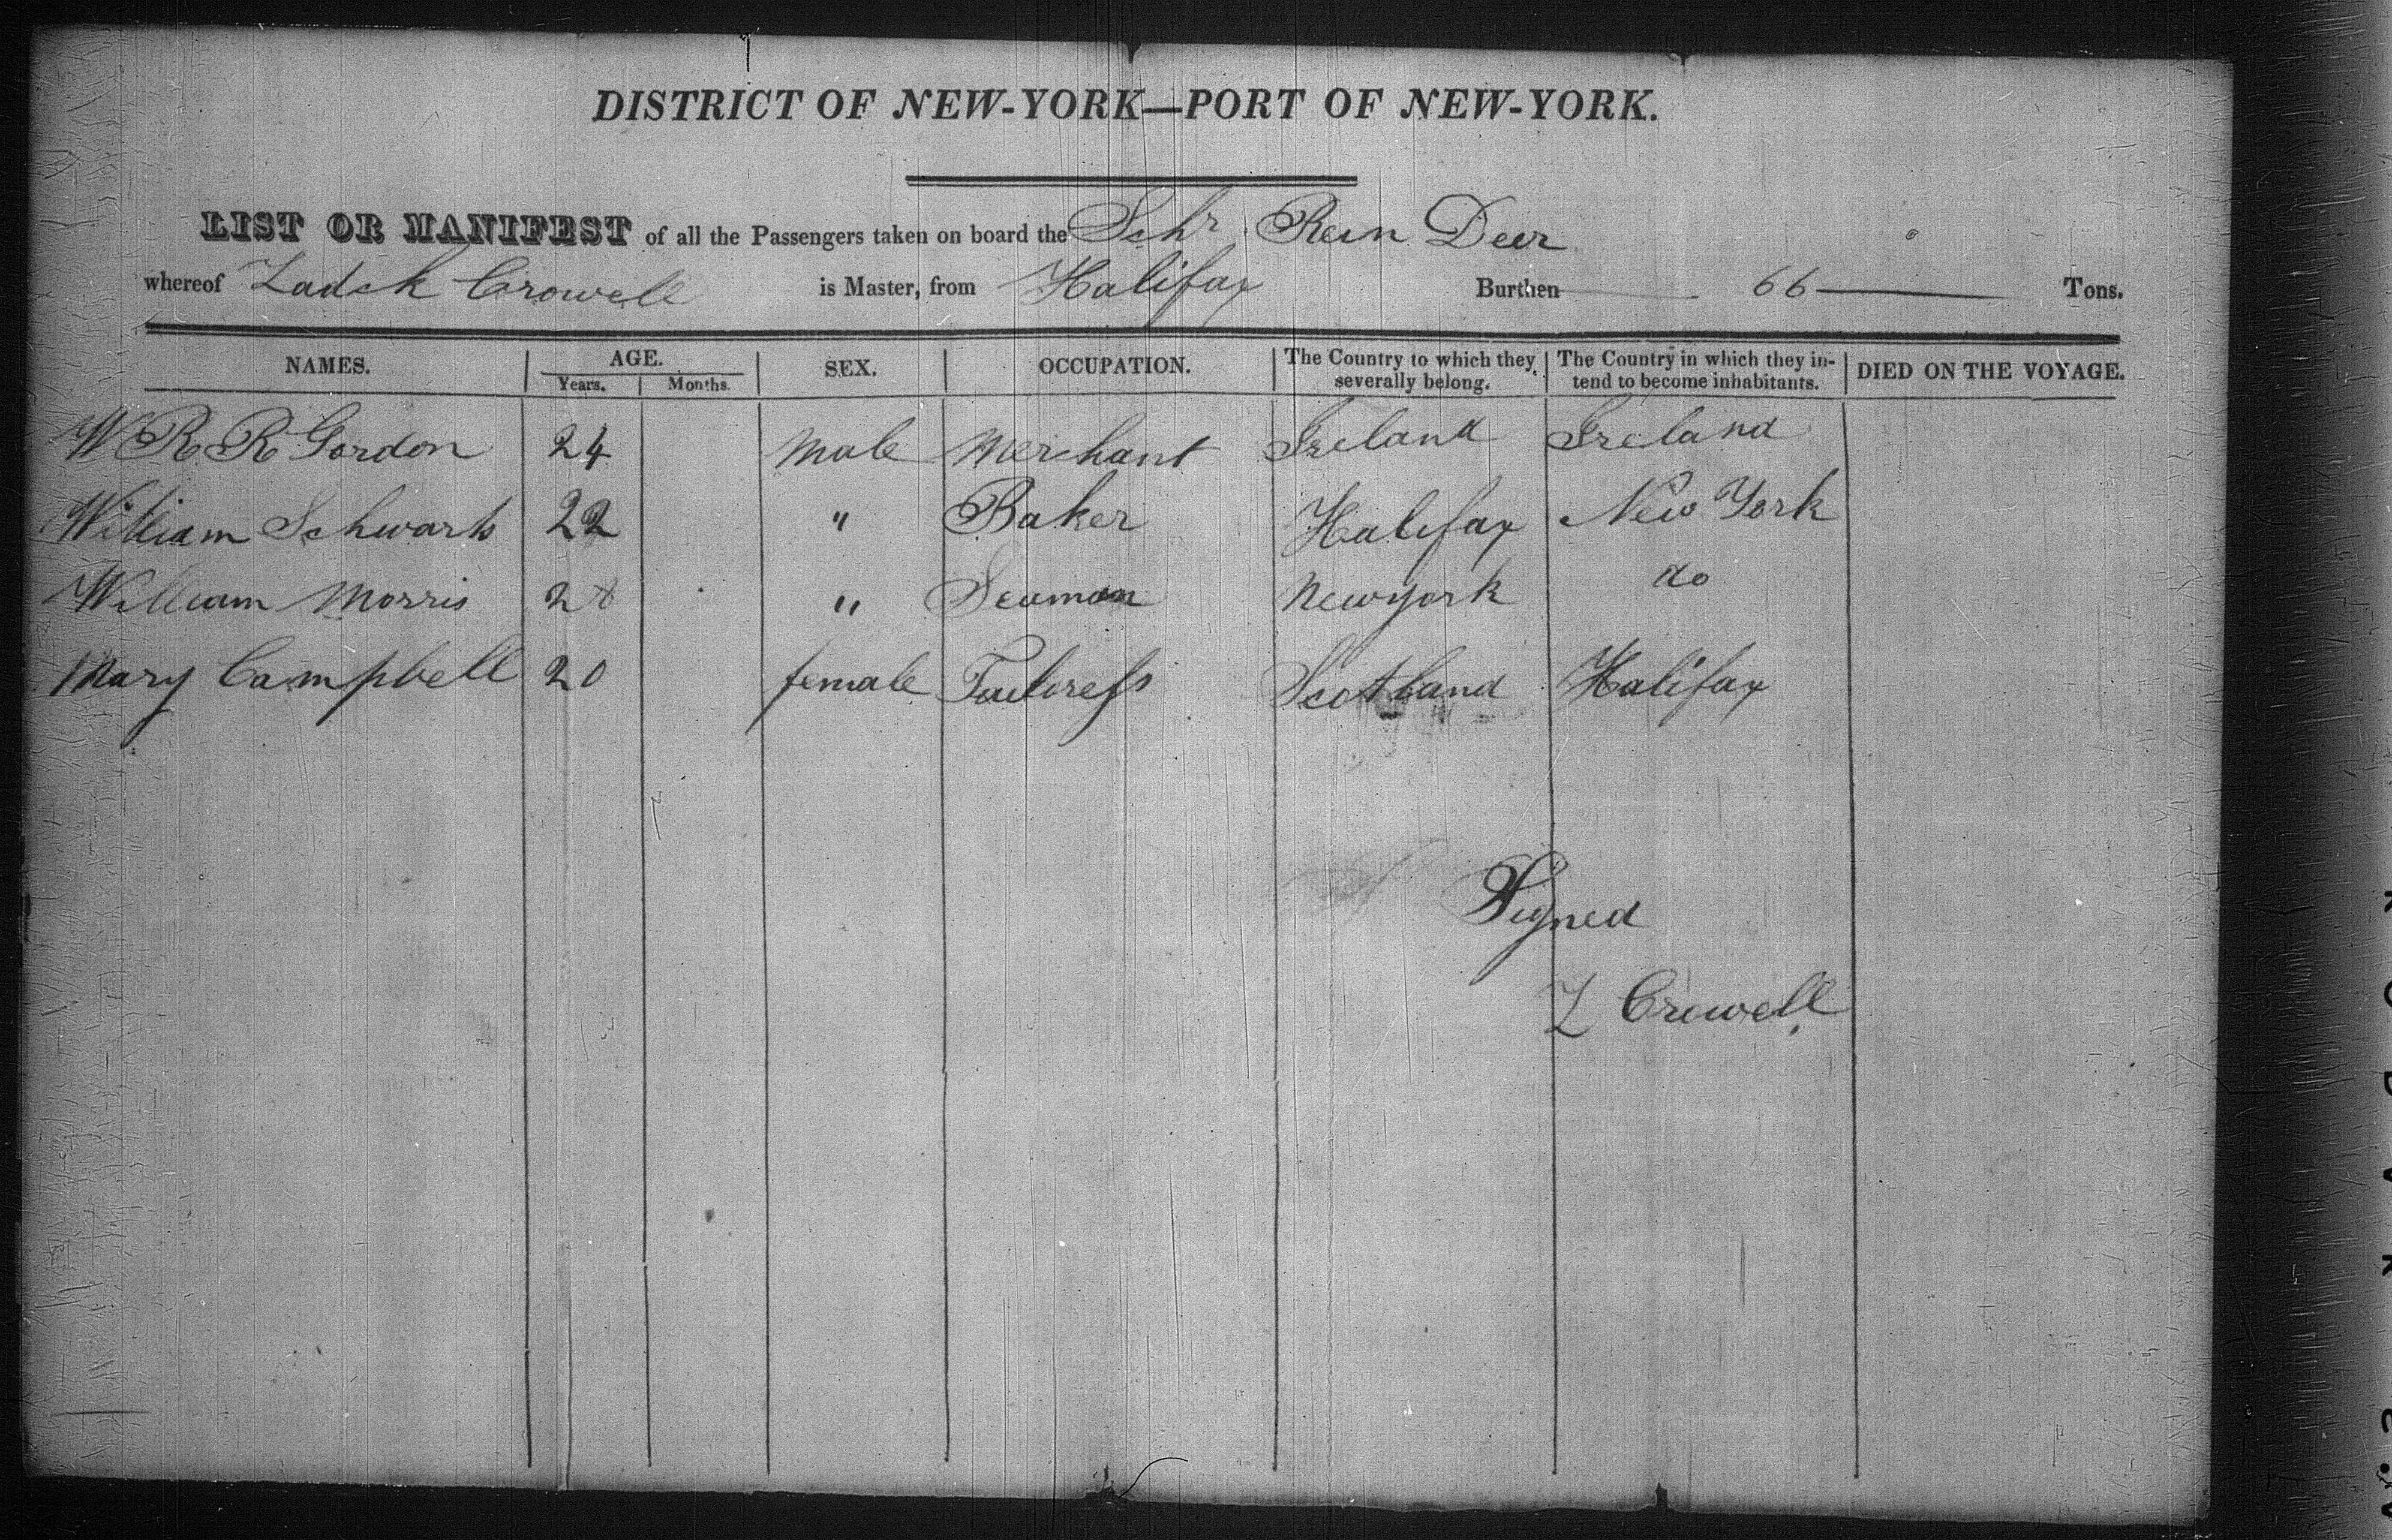 DISTRICT OF NEW-YORK—PORT OF NEW-YORK.
LIST OR MANIFEST of all the Passengers taken on board the Schr Rein Deer
whereof Zadok Crowell is Master, from Halifax Burthen 66 Tons.
NAMES. AGE. SEX. OCCUPATION. The Country to which they severally belong. The Country in which they intend to become inhabitants. DIED ON THE VOYAGE.
Years. Months.
W R R Gordon 24 Male Merchant Ireland Ireland
William Schwarts 22 " Baker Halifax New York
William Morris 28 " Seaman Newyork do
Mary Campbell 20 female Tailoress Scotland Halifax
Signed
Z Crowell